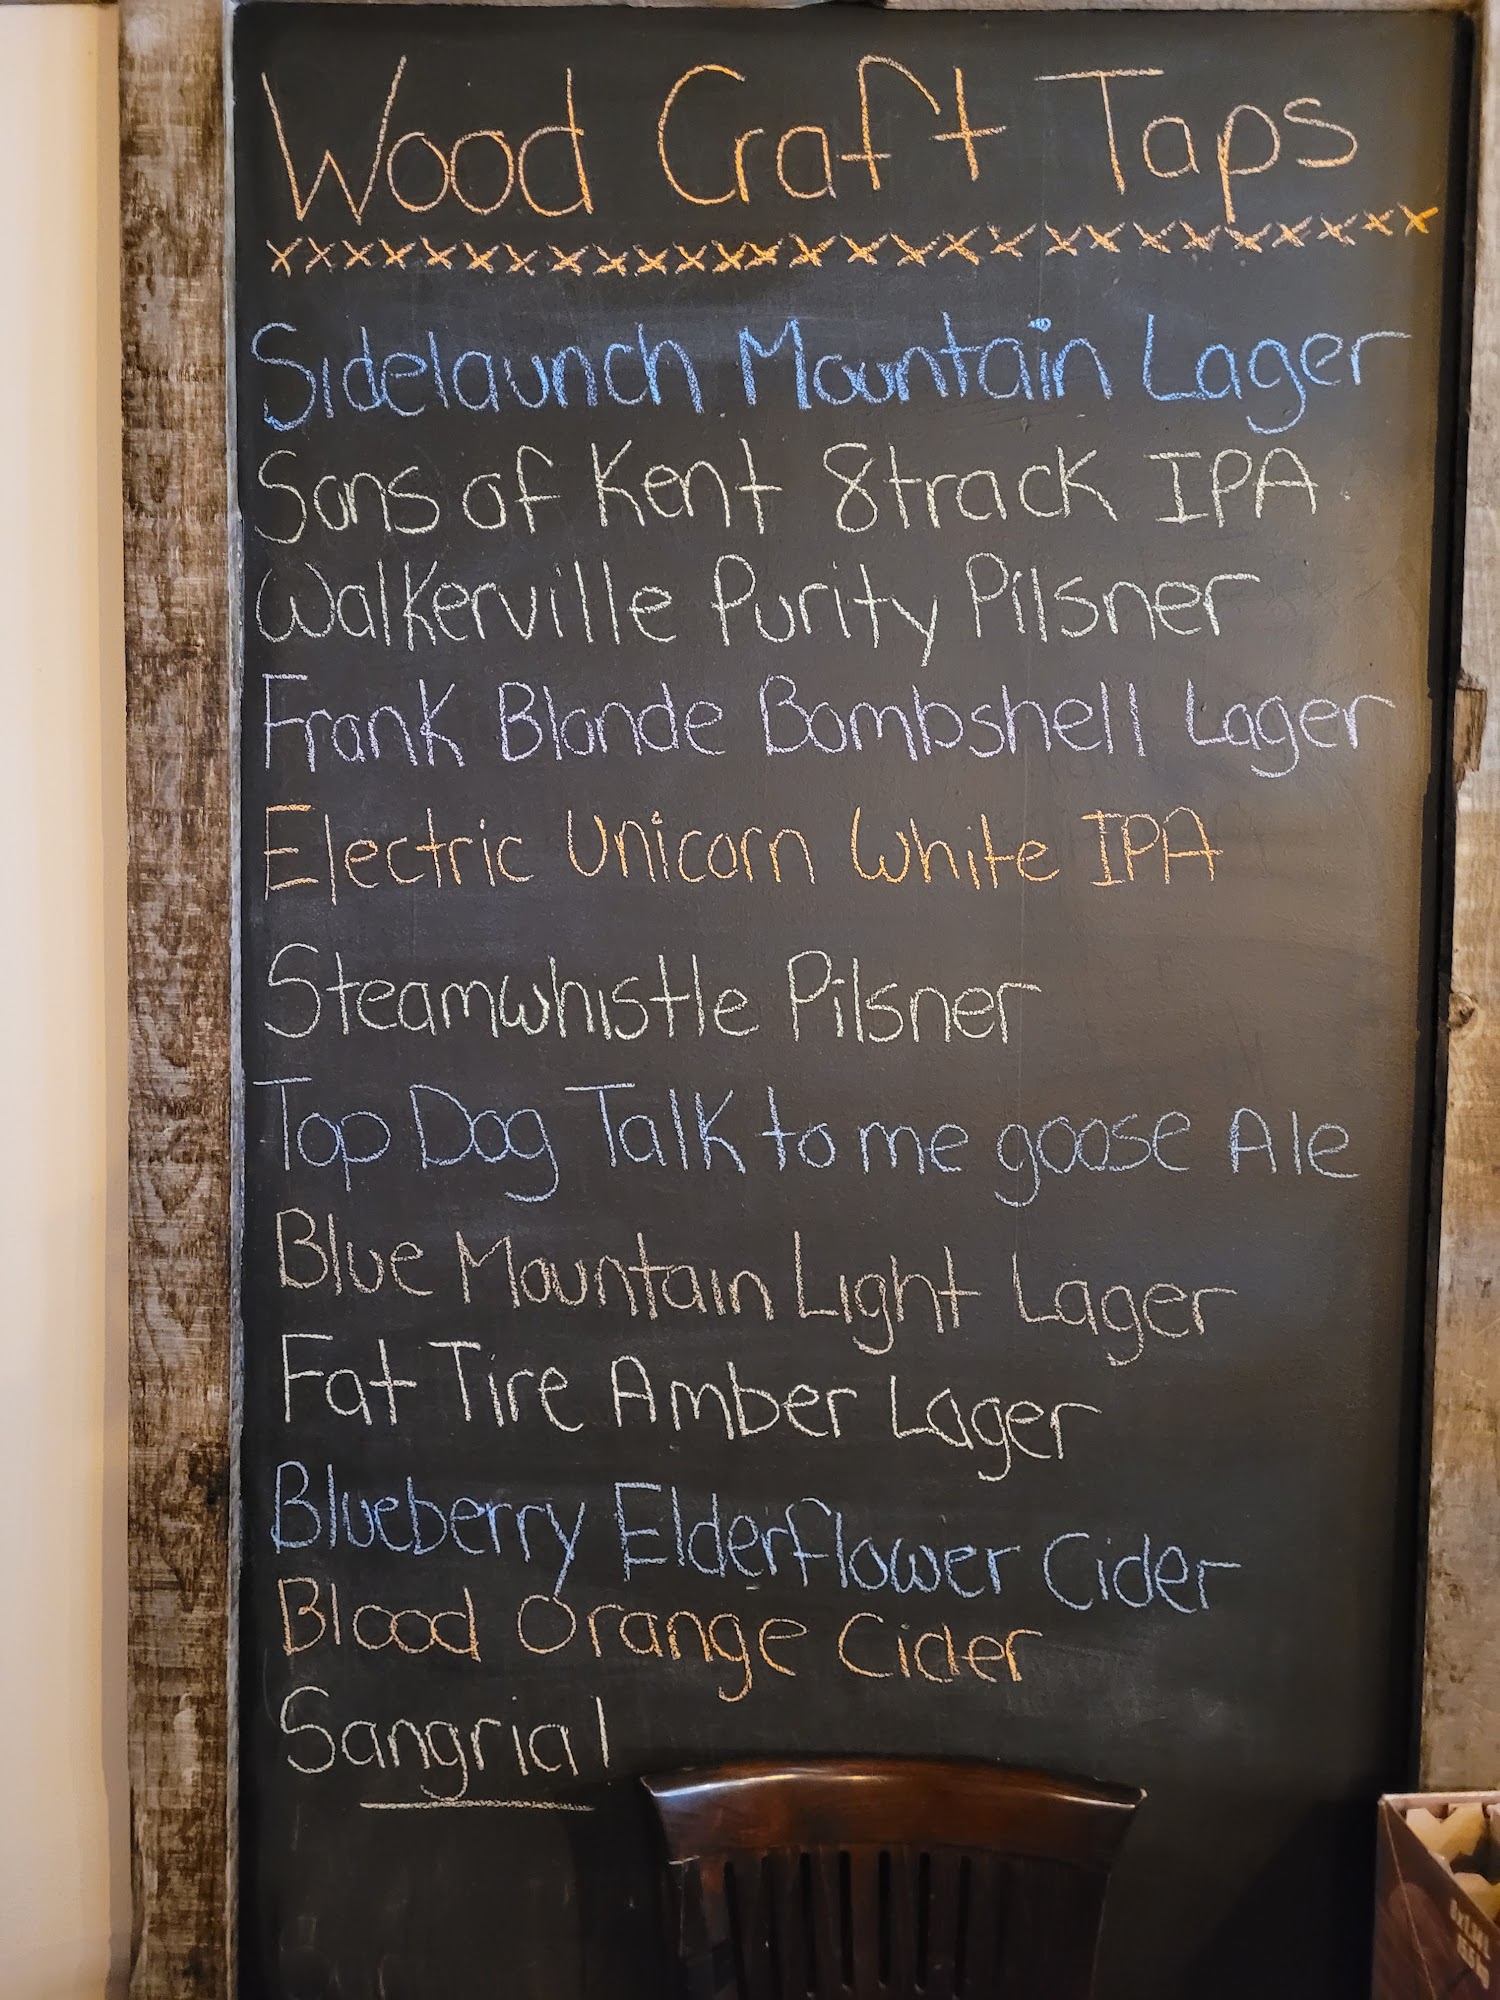 Wood Craft Taps
xxxxxxxxxxxxxxxxxxxxxxxxxxxxx
Sidelaunch Mountain Lager
Sons of Kent 8track IPA
Walkerville Purity Pilsner
Frank Blonde Bombshell Lager
Electric Unicorn White IPA
Steamwhistle Pilsner
Top Dog Talk to me goose Ale
Blue Mountain Light Lager
Fat Tire Amber Lager
Blueberry Elderflower Cider
Blood Orange Cider
Sangria!